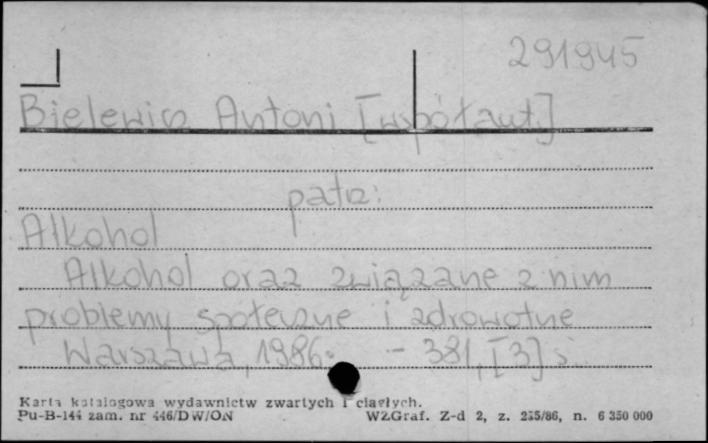 291945
Bielewicz Antoni [współaut.]
patrz:
Alkohol
Alkohol oraz związane z nim
problemy społeczne i zdrowotne
Warszawa, 1986. - 381, [3] s.
Karta katalogowa wydawnictw zwartych i ciągłych.
Pu-B-144 zam. nr 446/DW/ON WZGraf. Z-d 2, z. 235/86, n. 6 350 000